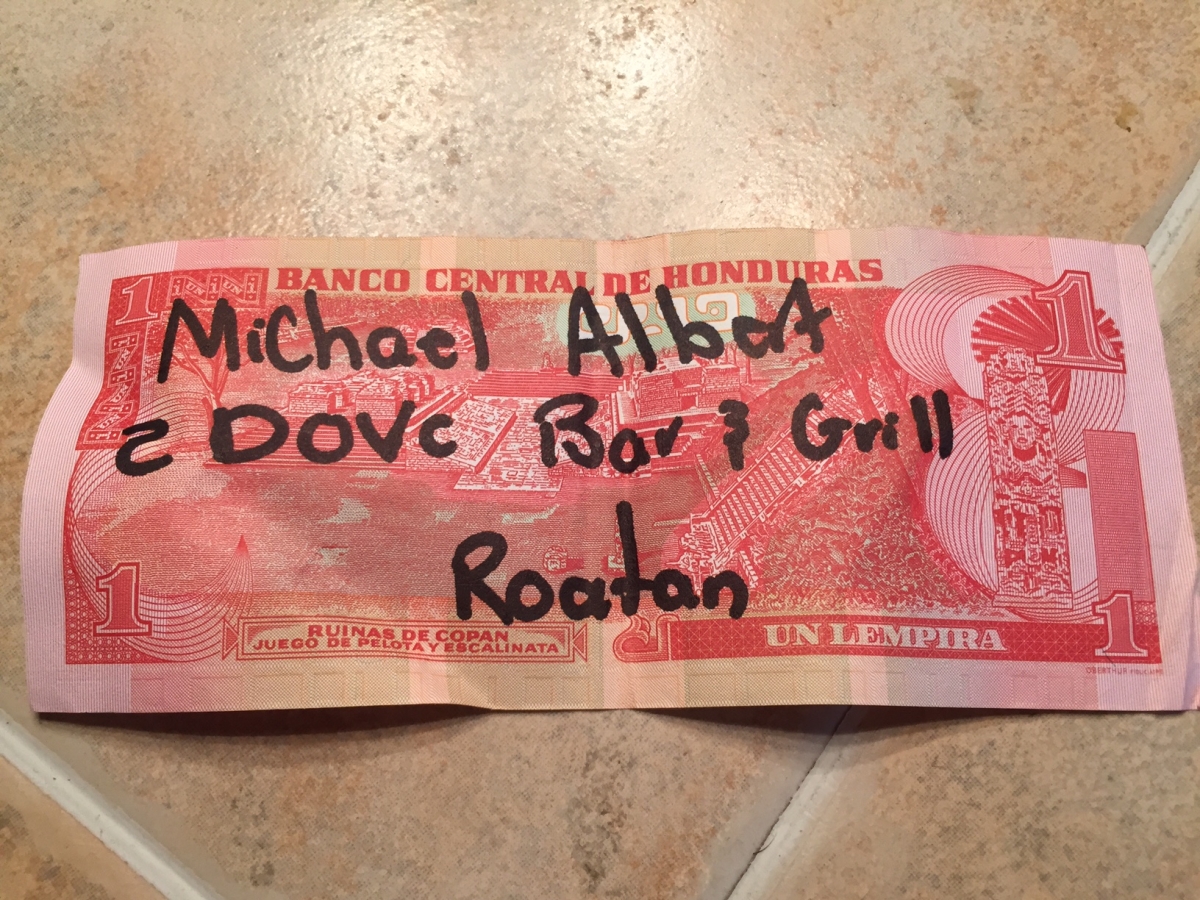 BANCO CENTRAL DE HONDURAS
1
UNI UNI UNI
1
Michael Albert
2 Dove Bar & Grill
Roatan
1
RUINAS DE COPAN
JUEGO DE PELOTA Y ESCALINATA
UN LEMPIRA
1